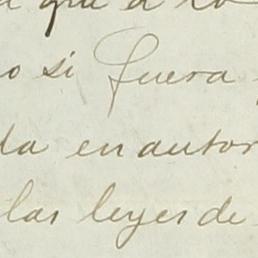 que a lo
o si fuera
da en autor
las leyes de